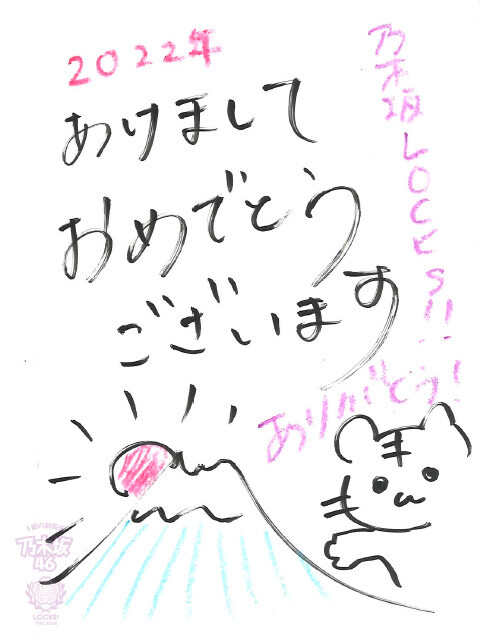 2022年
あけまして
おめでとう
ございます
乃木坂LOCKS!!
ありがとう!
乃木坂
46
LOCKS!